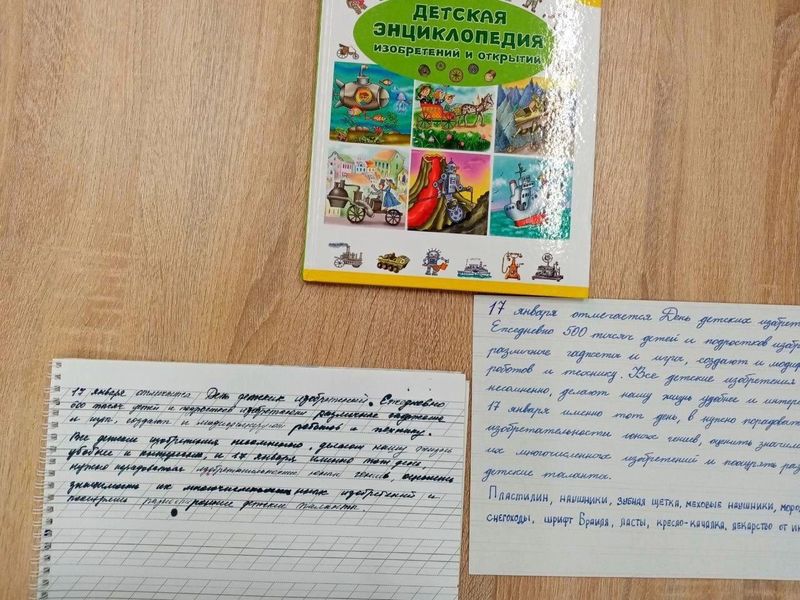 ДЕТСКАЯ
ЭНЦИКЛОПЕДИЯ
ИЗОБРЕТЕНИЙ И ОТКРЫТИЙ
17 января отмечается День детских изобрет
Ежедневно 500 тысяч детей и подростков изобр
различные гаджеты и игра, создают и модиф
роботов и технику. Все детские изобретения
несомненно, делают нашу жизнь удобнее и интер
17 января именно тот день, в нужно порадоват
изобретательности юных гениев, оценить значим
их многочисленных изобретений и поощрить раз
детские таланты.
Пластилин, наушники, зубная щетка, меховые наушники, моро
снегоходы, шрифт Брайля, ласты, кресло-качалка, лекарство от ик
17 января отмечается День детских изобретений. Ежедневно
500 тысяч детей и подростков изобретают различные гаджеты
и игры, создают и модифицируют роботов и технику.
Все детские изобретения несомненно, делают нашу жизнь
удобнее и интереснее, и 17 января именно тот день,
нужно порадоваться изобретательности юных гениев, оценить
значимость их многочисленных изобретений и
поощрить детские таланты.